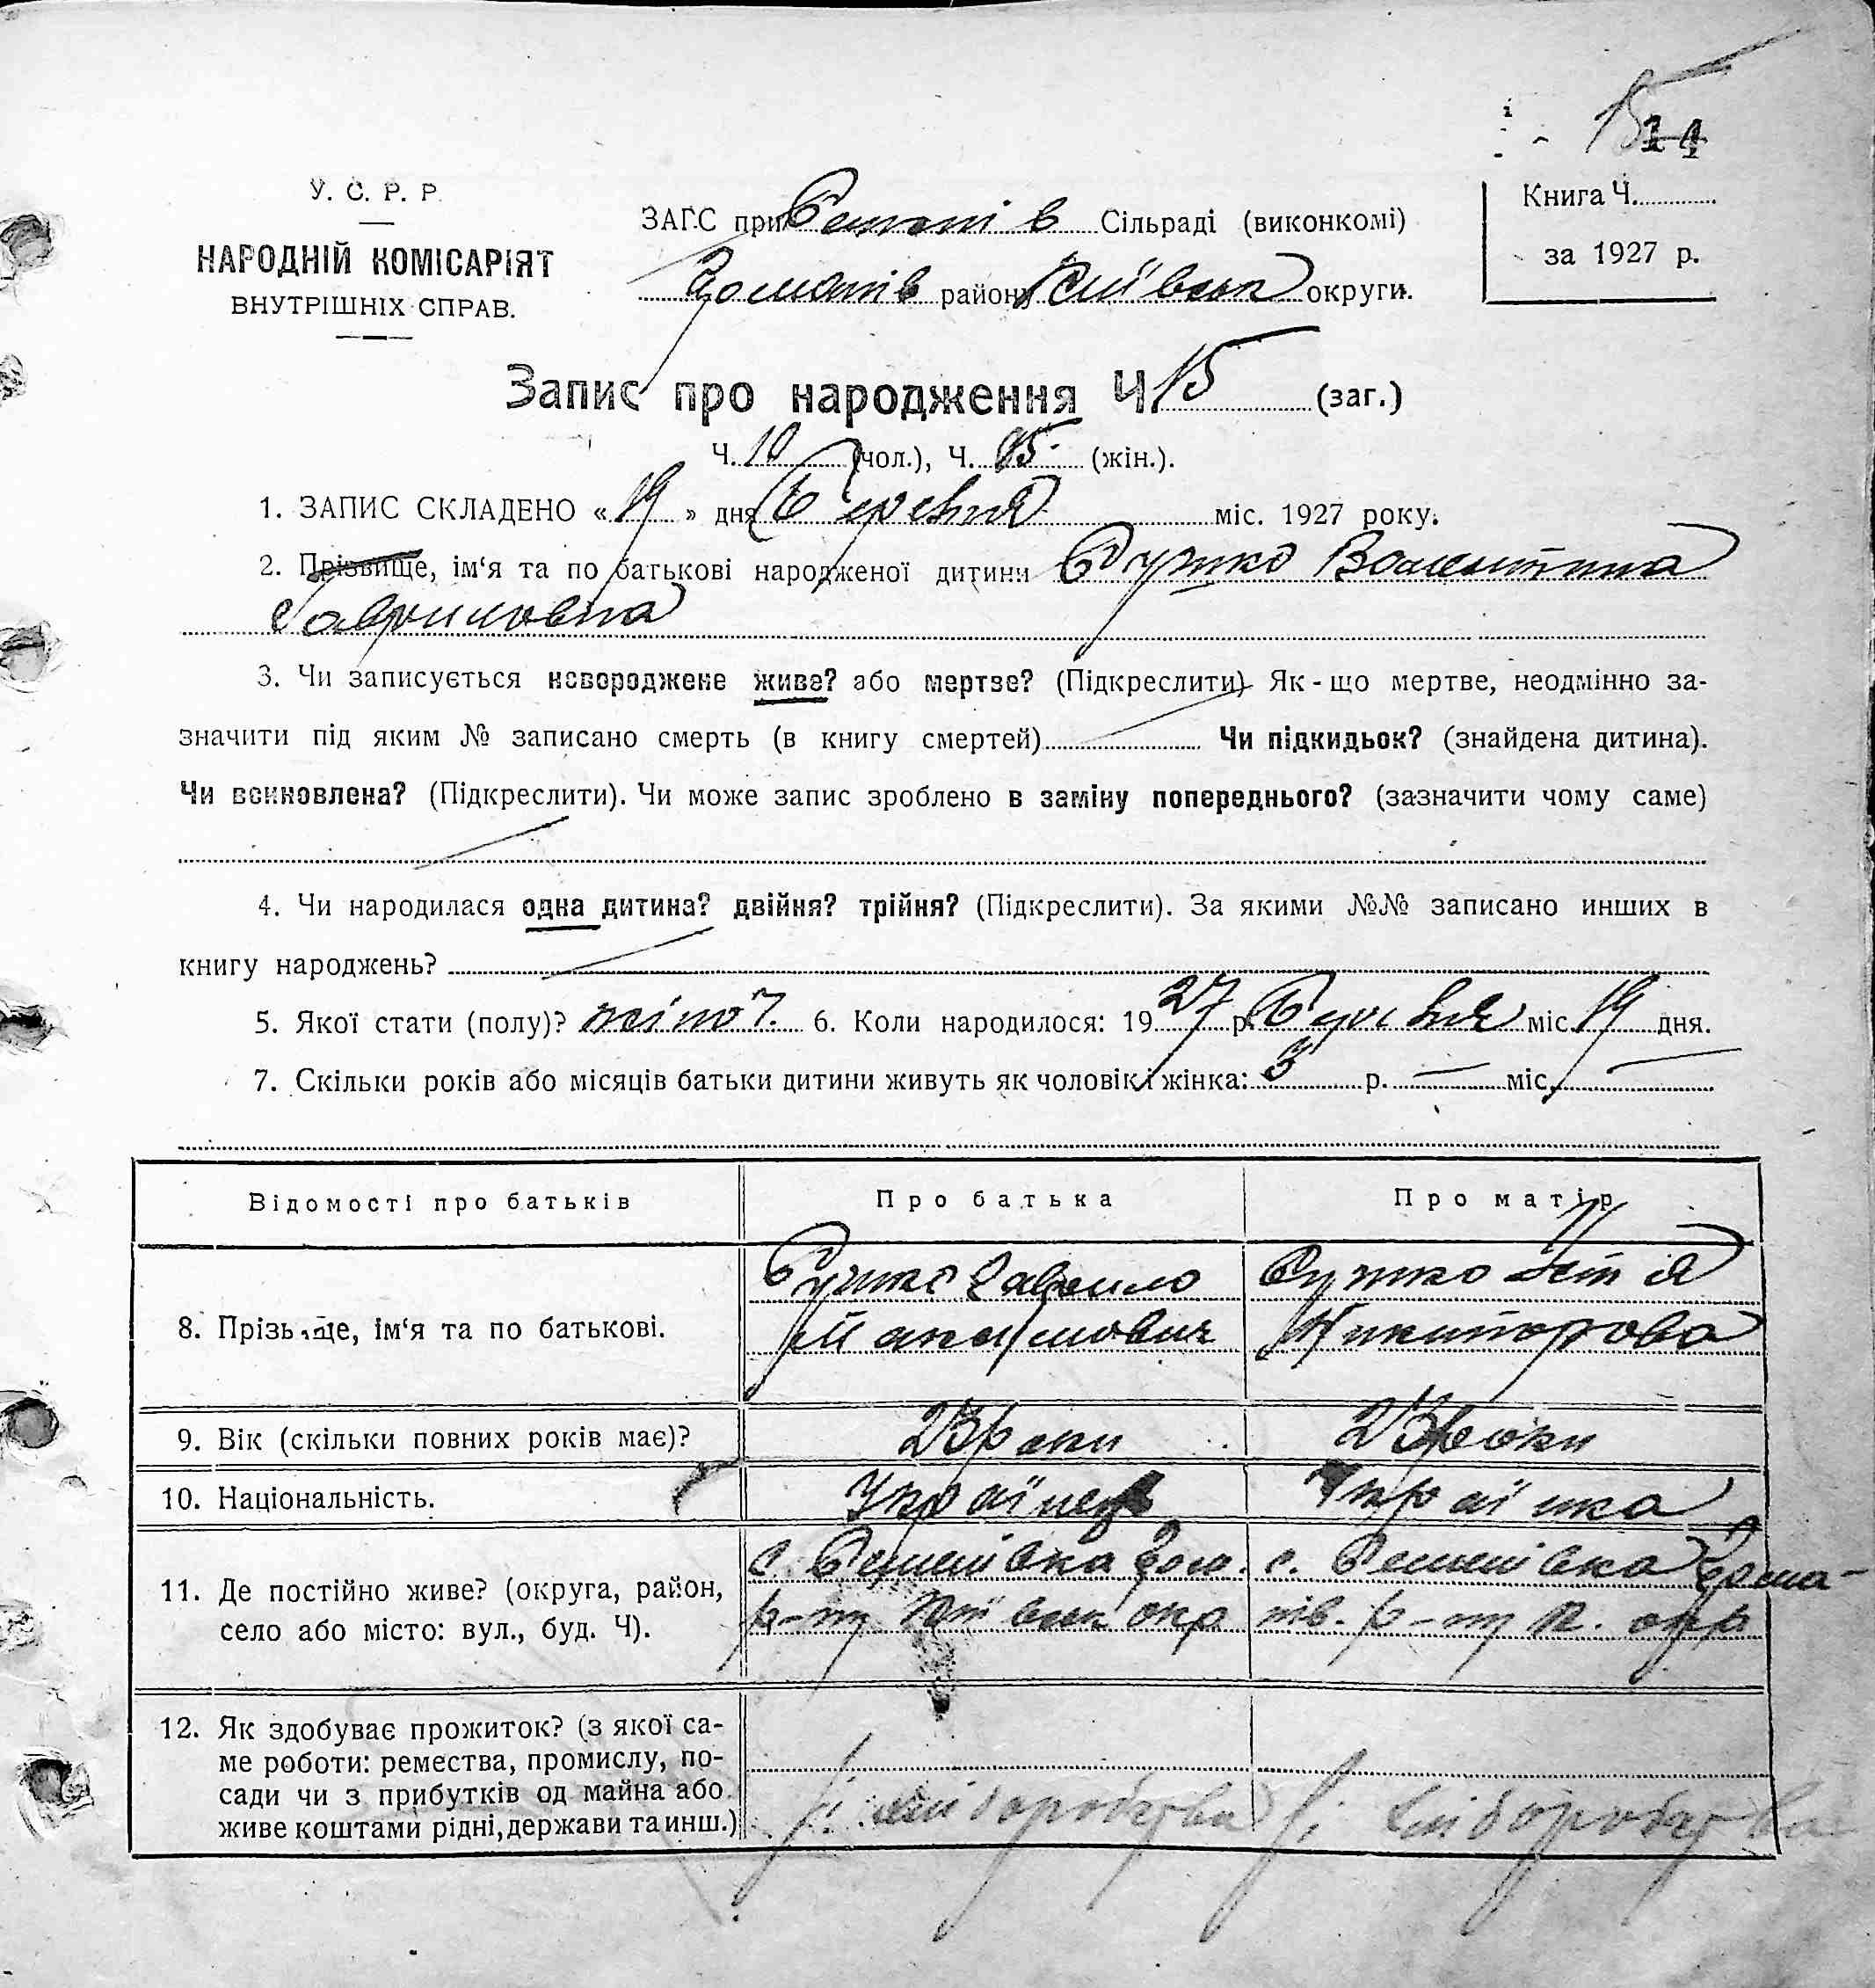 15 14
У. С. Р. Р.
НАРОДНІЙ КОМІСАРІЯТ
ВНУТРІШНІХ СПРАВ.
ЗАГС при Сільраді (виконкомі)
район Київськ округи.
Книга Ч.
за 1927 р.
Запис про народження Ч 15 (заг.)
Ч. 10 (чол.), Ч. (жін.).
1. ЗАПИС СКЛАДЕНО « 19 » дня Березня міс. 1927 року.
2. Прізвище, ім'я та по батькові народженої дитини Валентина
Гавриловна
3. Чи записується новороджене живе? або мертве? (Підкреслити) Як-що мертве, неодмінно за-
значити під яким № записано смерть (в книгу смертей) Чи підкидьок? (знайдена дитина).
Чи всиновлена? (Підкреслити). Чи може запис зроблено в заміну попереднього? (зазначити чому саме)
4. Чи народилася одна дитина? двійня? трійня? (Підкреслити). За якими №№ записано инших в
книгу народжень?
5. Якої стати (полу)? жіноч. 6. Коли народилося: 1927 р. Березня міс. 19 дня.
7. Скільки років або місяців батьки дитини живуть як чоловік і жінка: 3 р. — міс. —
Відомості про батьків Про батька Про матір
8. Прізьвище, ім'я та по батькові.
Гаврило
Никипорова
9. Вік (скільки повних років має)? 23 роки 23 роки
10. Національність. Українець Українка
11. Де постійно живе? (округа, район,
село або місто: вул., буд. Ч).
р-ну Київськ окр нів. р-ну К. окр
12. Як здобуває прожиток? (з якої са-
ме роботи: ремества, промислу, по-
сади чи з прибутків од майна або
живе коштами рідні, держави та инш.)
хліборобства хліборобства